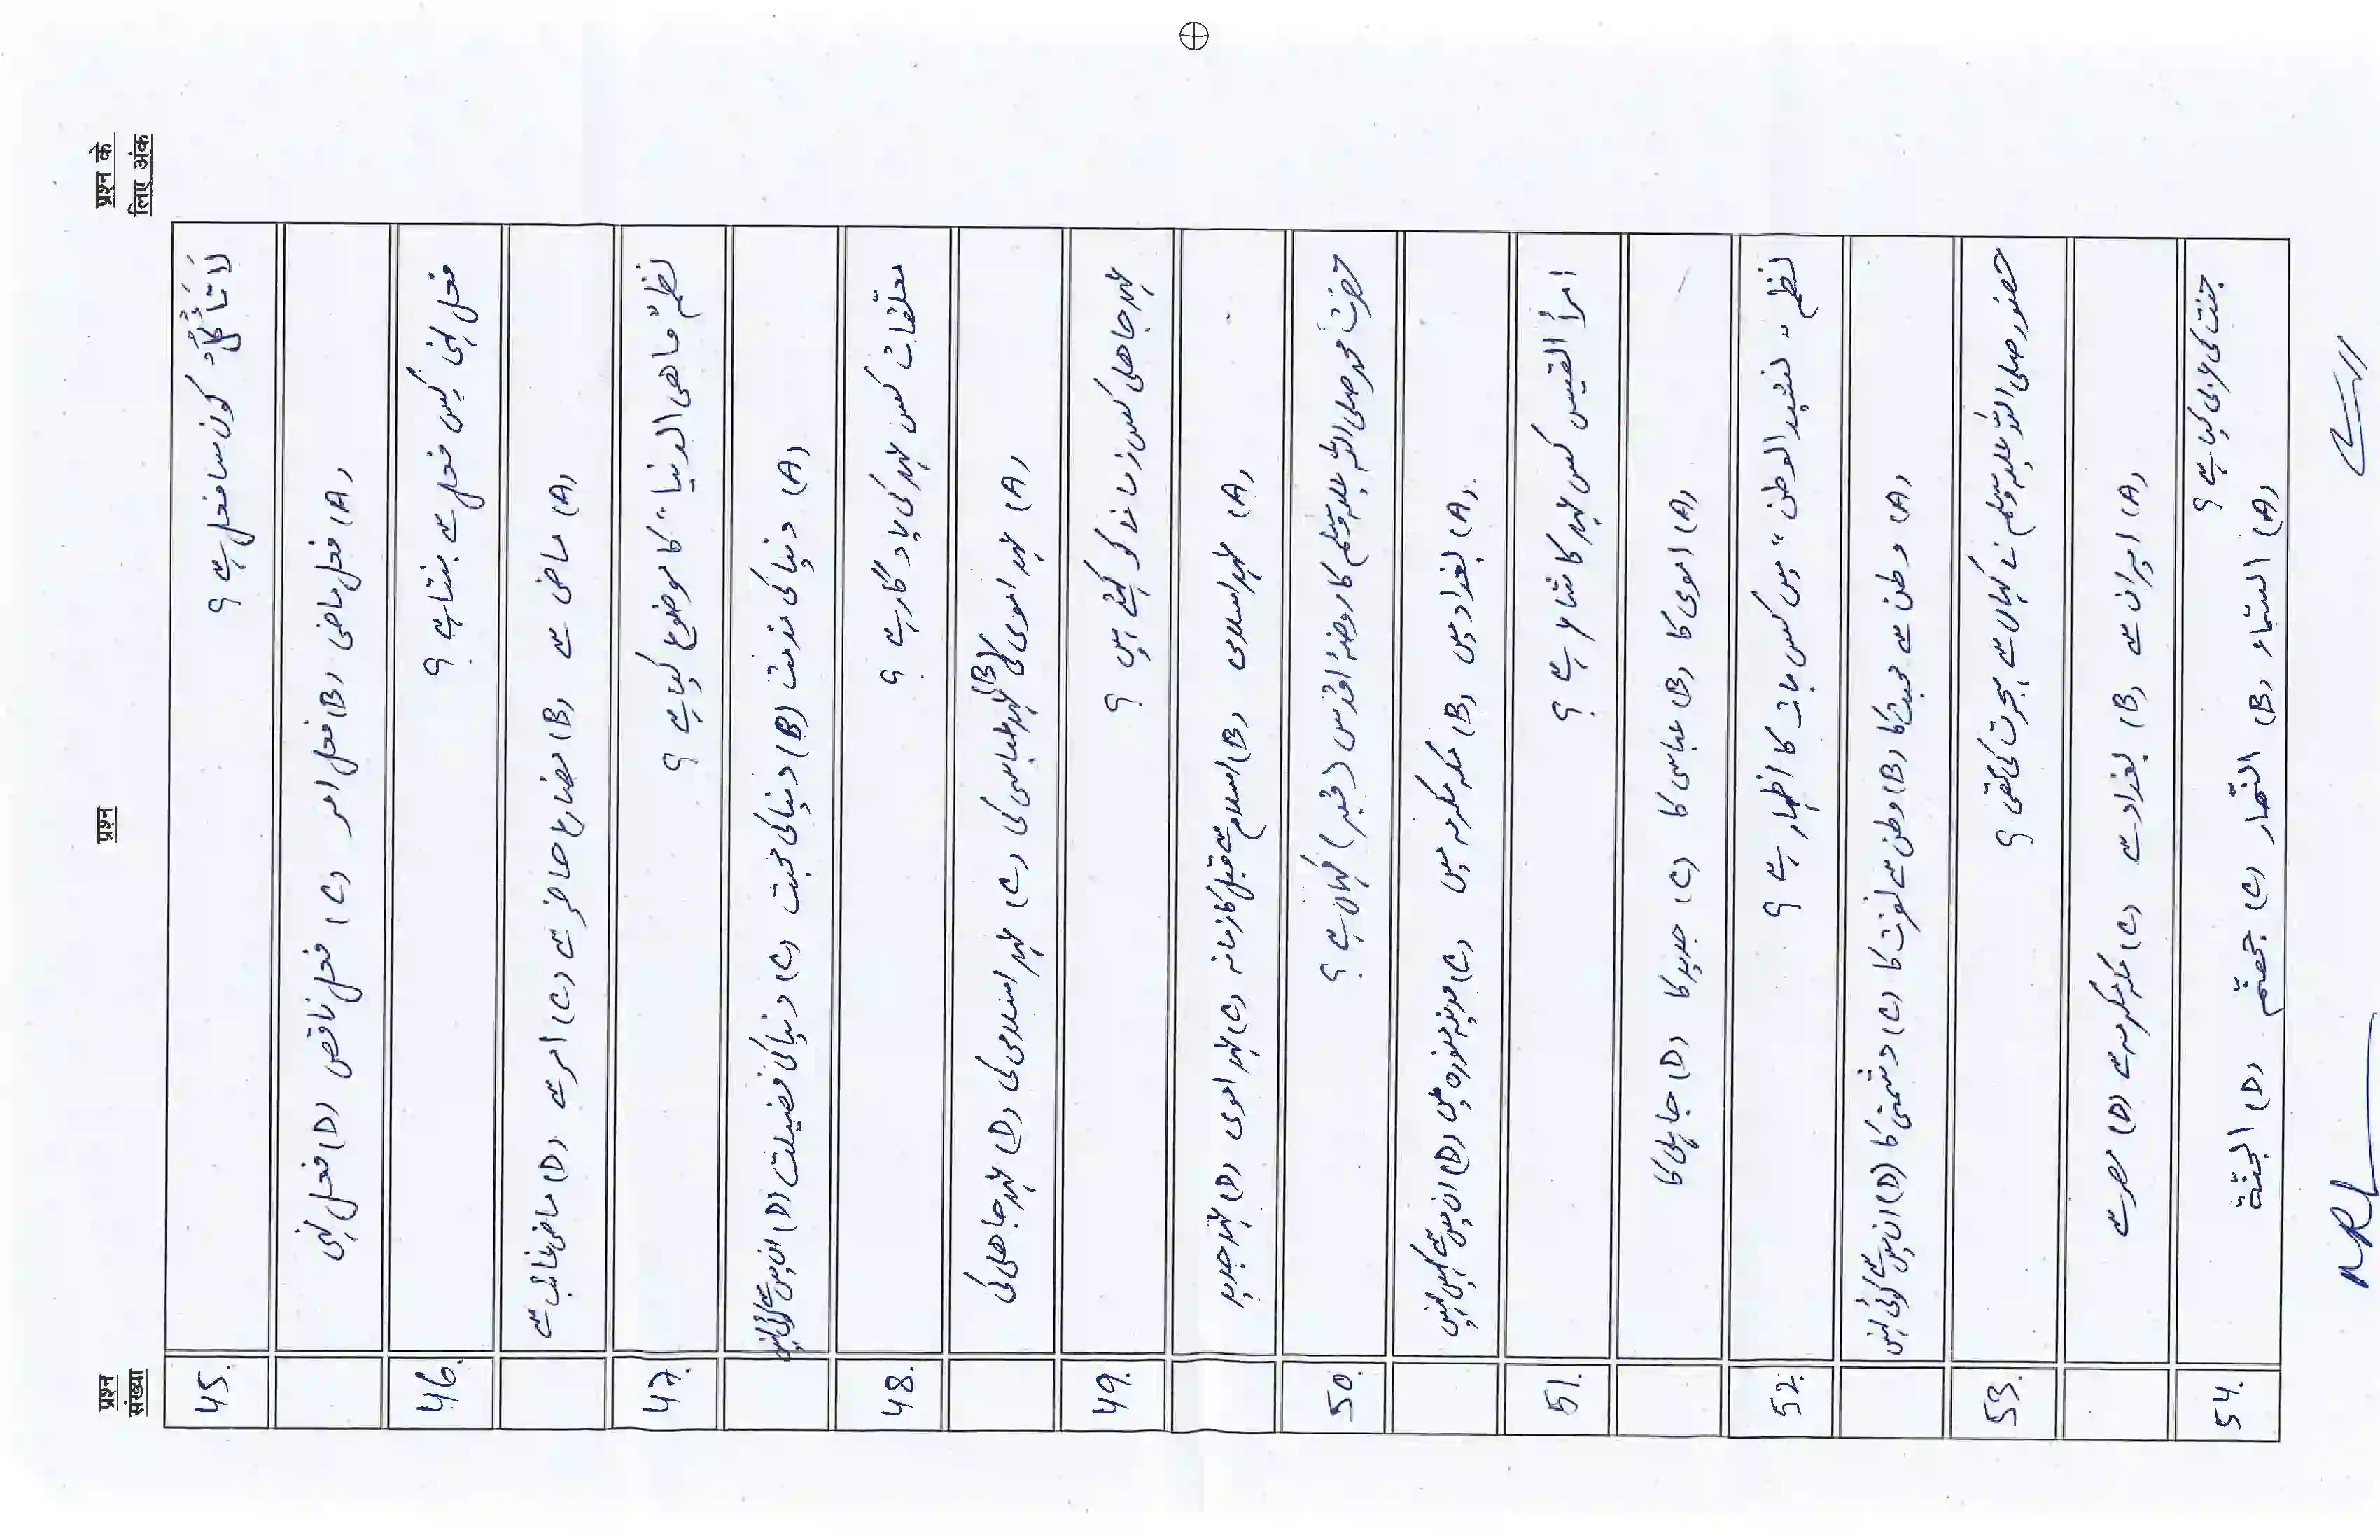 प्रश्न संख्या
प्रश्न
प्रश्न के लिए अंक
45. لَا تَأكُلُ کون سا فعل ہے ؟
(A) فعل ماضی (B) فعل امر (C) فعل ناقص (D) فعل نہی
46. فعل نہی کس فعل سے بنتا ہے ؟
(A) ماضی سے (B) مضارع حاضر سے (C) امر سے (D) ماضی غائب سے
47. نظم "ماھی الدنیا" کا موضوع کیا ہے ؟
(A) دنیا کی مذمت (B) دنیا کی محبت (C) دنیا کی فضیلت (D) ان میں سے کوئی نہیں
48. معلّقات کس عہد کی یادگار ہے ؟
(A) عہد اموی کی (B) عہد عباسی کی (C) عہد اسلامی کی (D) عہد جاھلی کی
49. عہد جاھلی کس زمانہ کو کہتے ہیں ؟
(A) عہد اسلامی (B) اسلام سے قبل کا زمانہ (C) عہد اموی (D) عہد جدید
50. حضرت محمد صلی اللہ علیہ وسلم کا روضۂ اقدس (قبر) کہاں ہے ؟
(A) بغداد میں (B) مکہ مکرمہ میں (C) مدینہ منورہ میں (D) ان میں سے کہیں نہیں
51. امرأ القیس کس عہد کا شاعر ہے ؟
(A) اموی کا (B) عباسی کا (C) جدید کا (D) جاہلی کا
52. نظم "نشید الوطن" میں کس بات کا اظہار ہے ؟
(A) وطن سے محبت کا (B) وطن سے نفرت کا (C) دشمنی کا (D) ان میں سے کوئی نہیں
53. حضور صلی اللہ علیہ وسلم نے کہاں سے ہجرت کی تھی ؟
(A) ایران سے (B) بغداد سے (C) مکہ مکرمہ سے (D) مصر سے
54. جنت کی عربی کیا ہے ؟
(A) السّماء (B) النّھار (C) جھنّم (D) الجنّة